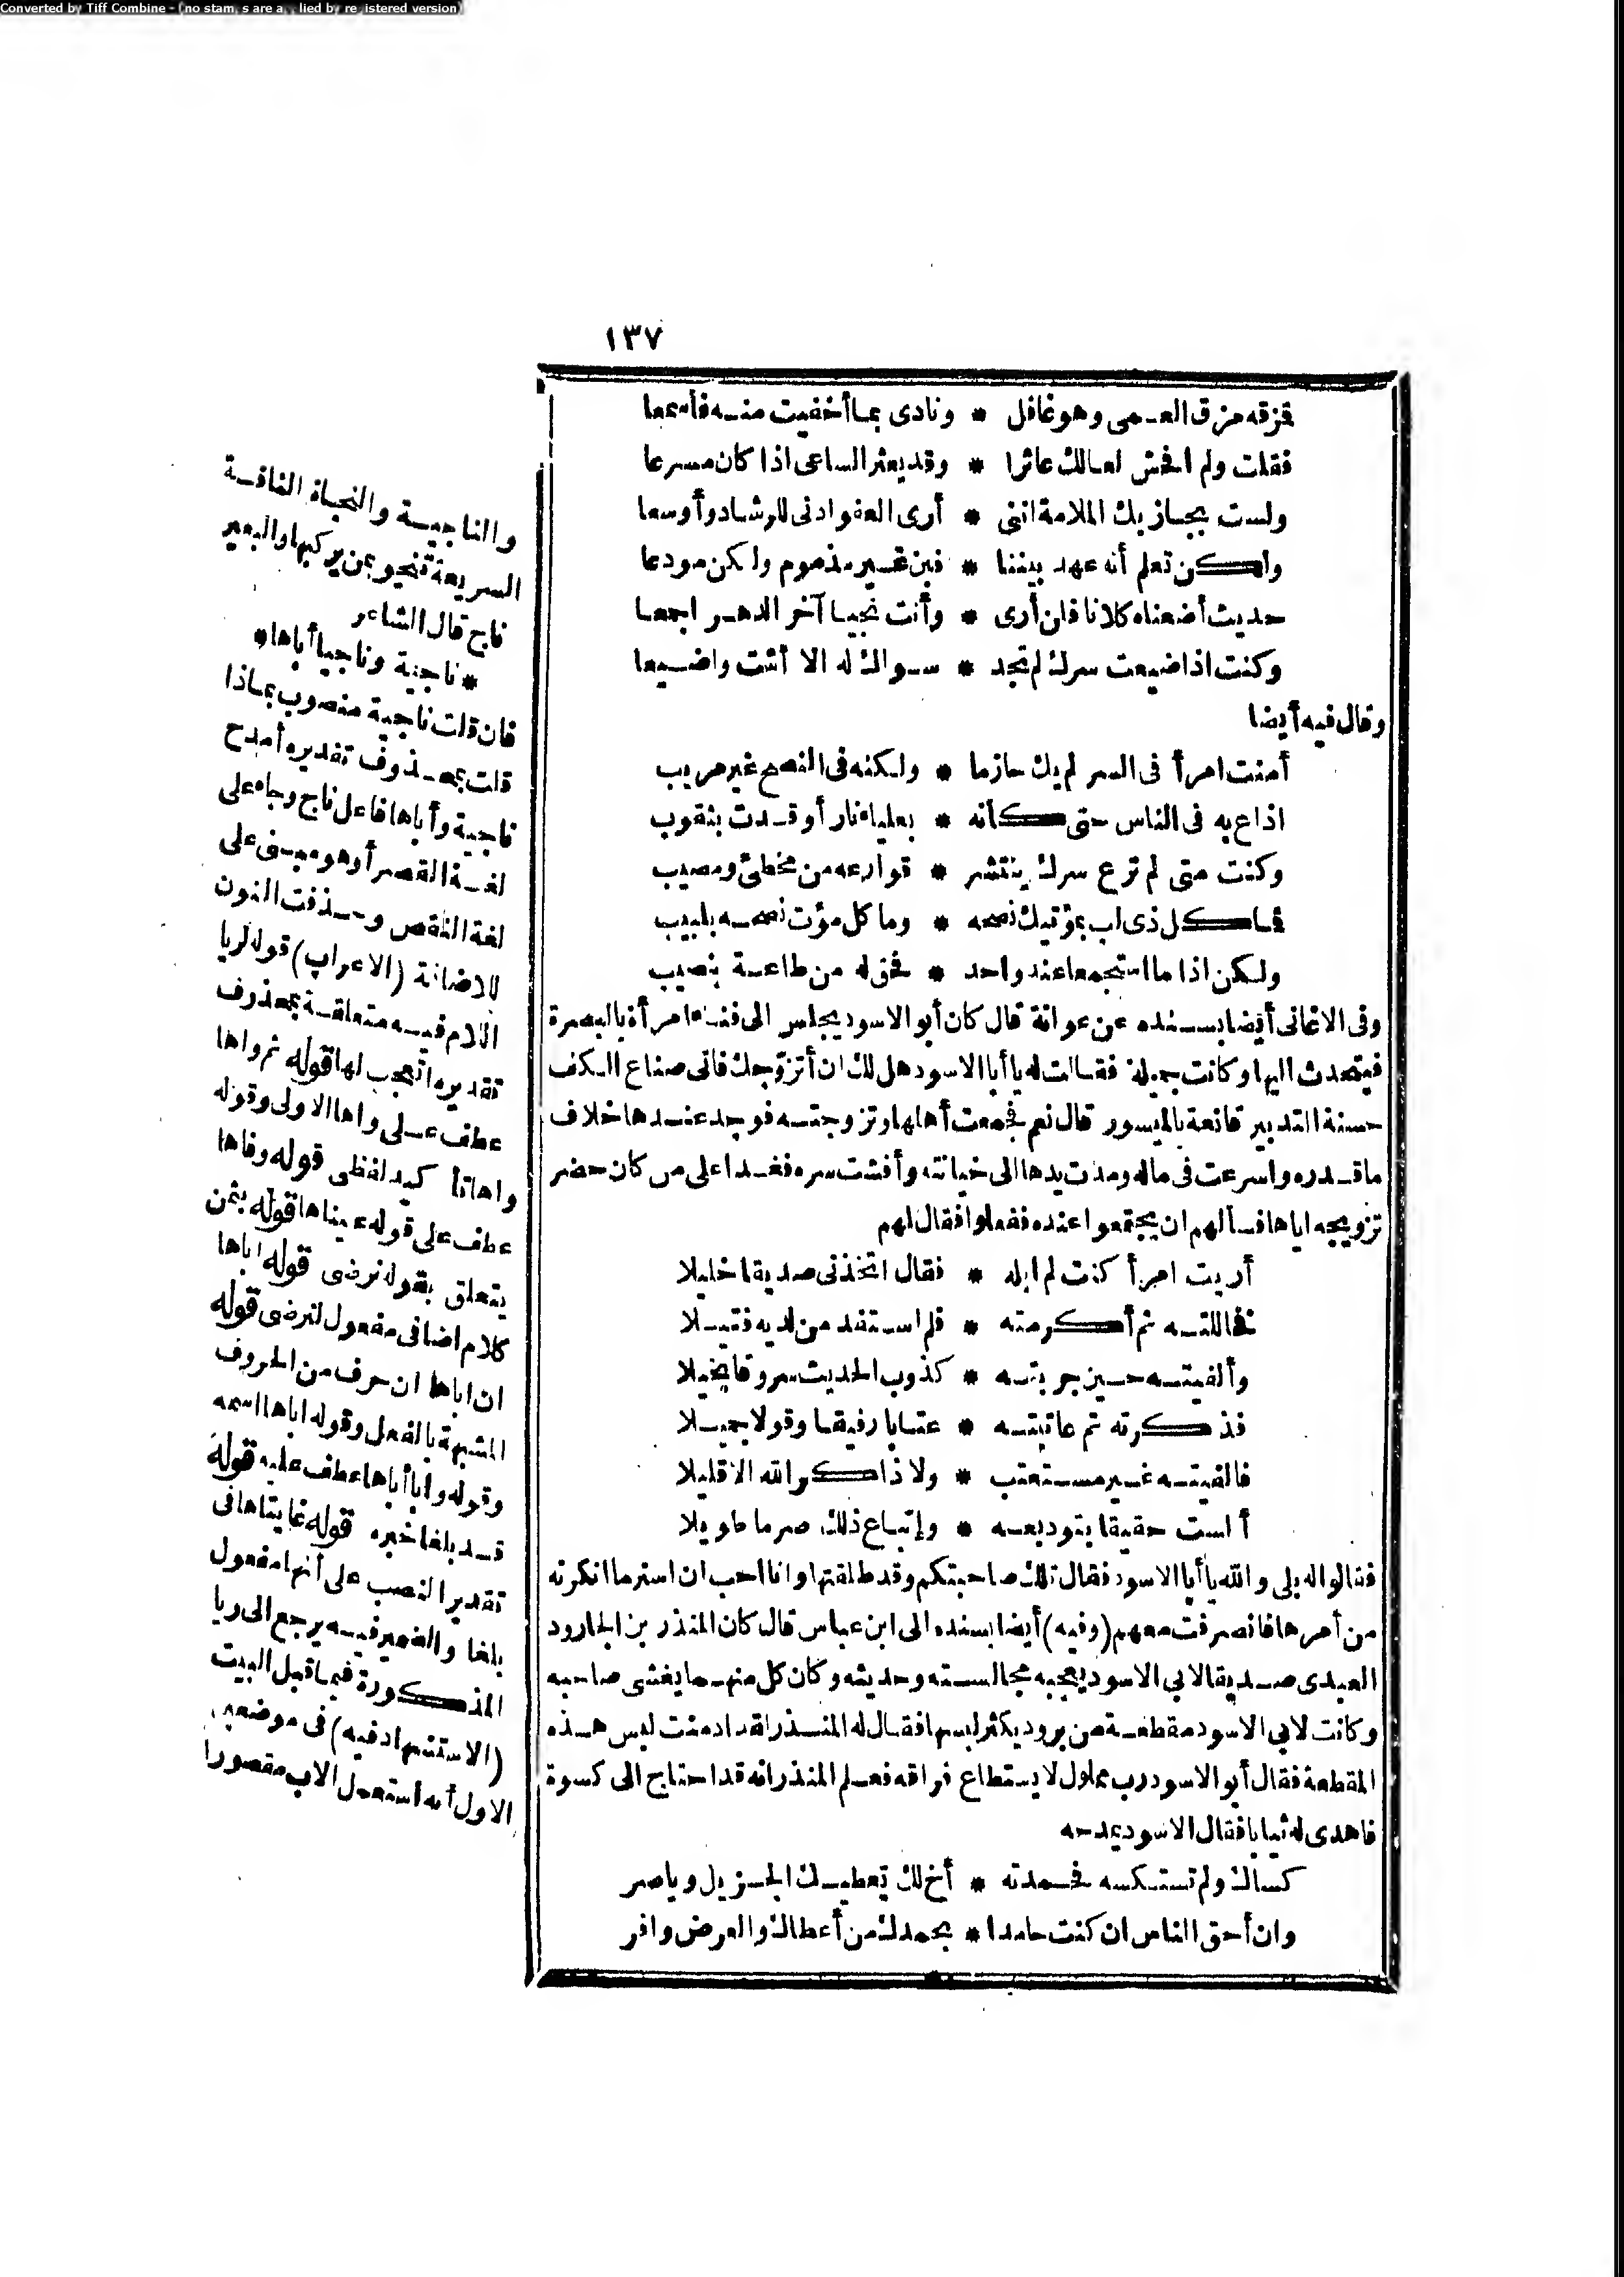 Converted by Tiff Combine - (no stamps are applied by registered version)
١٣٧
فمزقه مزق العمى وهو غافل * ونادى بما أخفيت منه فأسمعا
فقلت ولم افحش لعالك عاثرا * وقد يعثر الساعى اذا كان مسرعا
ولست بجازيك الملامة اننى * أرى العفو ادنى للرشاد وأوسعا
ولكن تعلم أنه عهد بيننا * فبن غير مذموم ولكن مودعا
حديث أضعناه كلانا فان أرى * وأنت نجيا آخر الدهر اجمعا
وكنت اذا ضيعت سرك لم تجد * سواك له الا أشت واضيعا
وقال فيه أيضا
أمنت امرأ فى السر لم يك حازما * ولكنه فى النصح غير مريب
اذاع به فى الناس حتى كأنه * بعلياء نار أوقدت بثقوب
وكنت متى لم ترع سرك ينتشر * قوارعه من مخطئ ومصيب
فما كل ذى لب بمؤتيك نصحه * وما كل مؤت نصحه بلبيب
ولكن اذا ما استجمعا عند واحد * فحق له من طاعة بنصيب
وفى الاغانى أيضا بسنده عن عوانة قال كان أبو الاسود يجلس الى فناء امرأة بالبصرة
فيتحدث اليها وكانت جميلة فقالت له يا أبا الاسود هل لك ان أتزوجك فانى صناع الكف
حسنة التدبير قانعة بالميسور قال نعم فجمعت أهلها وتزوجته فوجد عندها خلاف
ما قدره واسرعت فى ماله ومدت يدها الى خيانته وأفشت سره فغدا على من كان حضر
تزويجه اياها فسألهم ان يجتمعوا عنده ففعلوا فقال لهم
أريت امرأ كنت لم ابله * فقال اتخذنى صديقا خليلا
فخاللته ثم أكرمته * فلم استفد من لديه فتيلا
وألفيته حين جربته * كذوب الحديث سروقا بخيلا
فذكرته ثم عاتبته * عتابا رفيقا وقولا جميلا
فالفيته غير مستعتب * ولا ذاكر الله الا قليلا
ألست حقيقا بتوديعه * وإتباع ذلك صرما طويلا
فقالوا له بلى والله يا أبا الاسود فقال تلك صاحبتكم وقد طلقتها وانا احب ان استر ما انكرته
من أمرها فانصرفت معهم (وفيه) أيضا بسنده الى ابن عباس قال كان المنذر بن الجارود
العبدى صديقا لابي الاسود يعجبه مجالسته وحديثه وكان كل منهما يغشى صاحبه
وكانت لابي الاسود مقطعة من برود يكثر لبسها فقال له المنذر لقد ادمنت لبس هذه
المقطعة فقال أبو الاسود رب مملول لا يستطاع فراقه فعلم المنذر انه قد احتاج الى كسوة
فاهدى له ثيابا فقال الاسود يمدحه
كساك ولم تستكسه فحمدته * أخ لك يعطيك الجزيل وياصر
وان أحق الناس ان كنت حامدا * بحمدك من أعطاك والعرض وافر
والناجية والنجاة الناقة
السريعة تنجو بمن يركبها والبعير
ناج قال الشاعر
* ناجية وناجيا أباها *
فان قلت ناجية منصوب بماذا
قلت بمحذوف تقديره أمدح
ناجية وأباها فاعل ناج وجاء على
لغة القصر أو هو مبنى على
لغة النقص وحذفت النون
للاضافة (الاعراب) قوله لريا
اللام فيه متعلقة بمحذوف
تقديره اتعجب لها قوله ثم واها
عطف على واها الاولى وقوله
واها تأكيد لفظى قوله وفاها
عطف على قوله عيناها قوله بثمن
يتعلق بقوله نرضى قوله اباها
كلام اضافى مفعول لنرضى قوله
ان اباها ان حرف من الحروف
المشبهة بالفعل وقوله اباها اسمه
وقوله وأبا أباها عطف عليه قوله
قد بلغا خبره قوله غايتاها فى
تقدير النصب على أنها مفعول
بلغا والضمير فيه يرجع الى ريا
المذكورة فيما قبل البيت
(الاستشهاد فيه) فى موضعين
الاول أنه استعمل الاب مقصورا